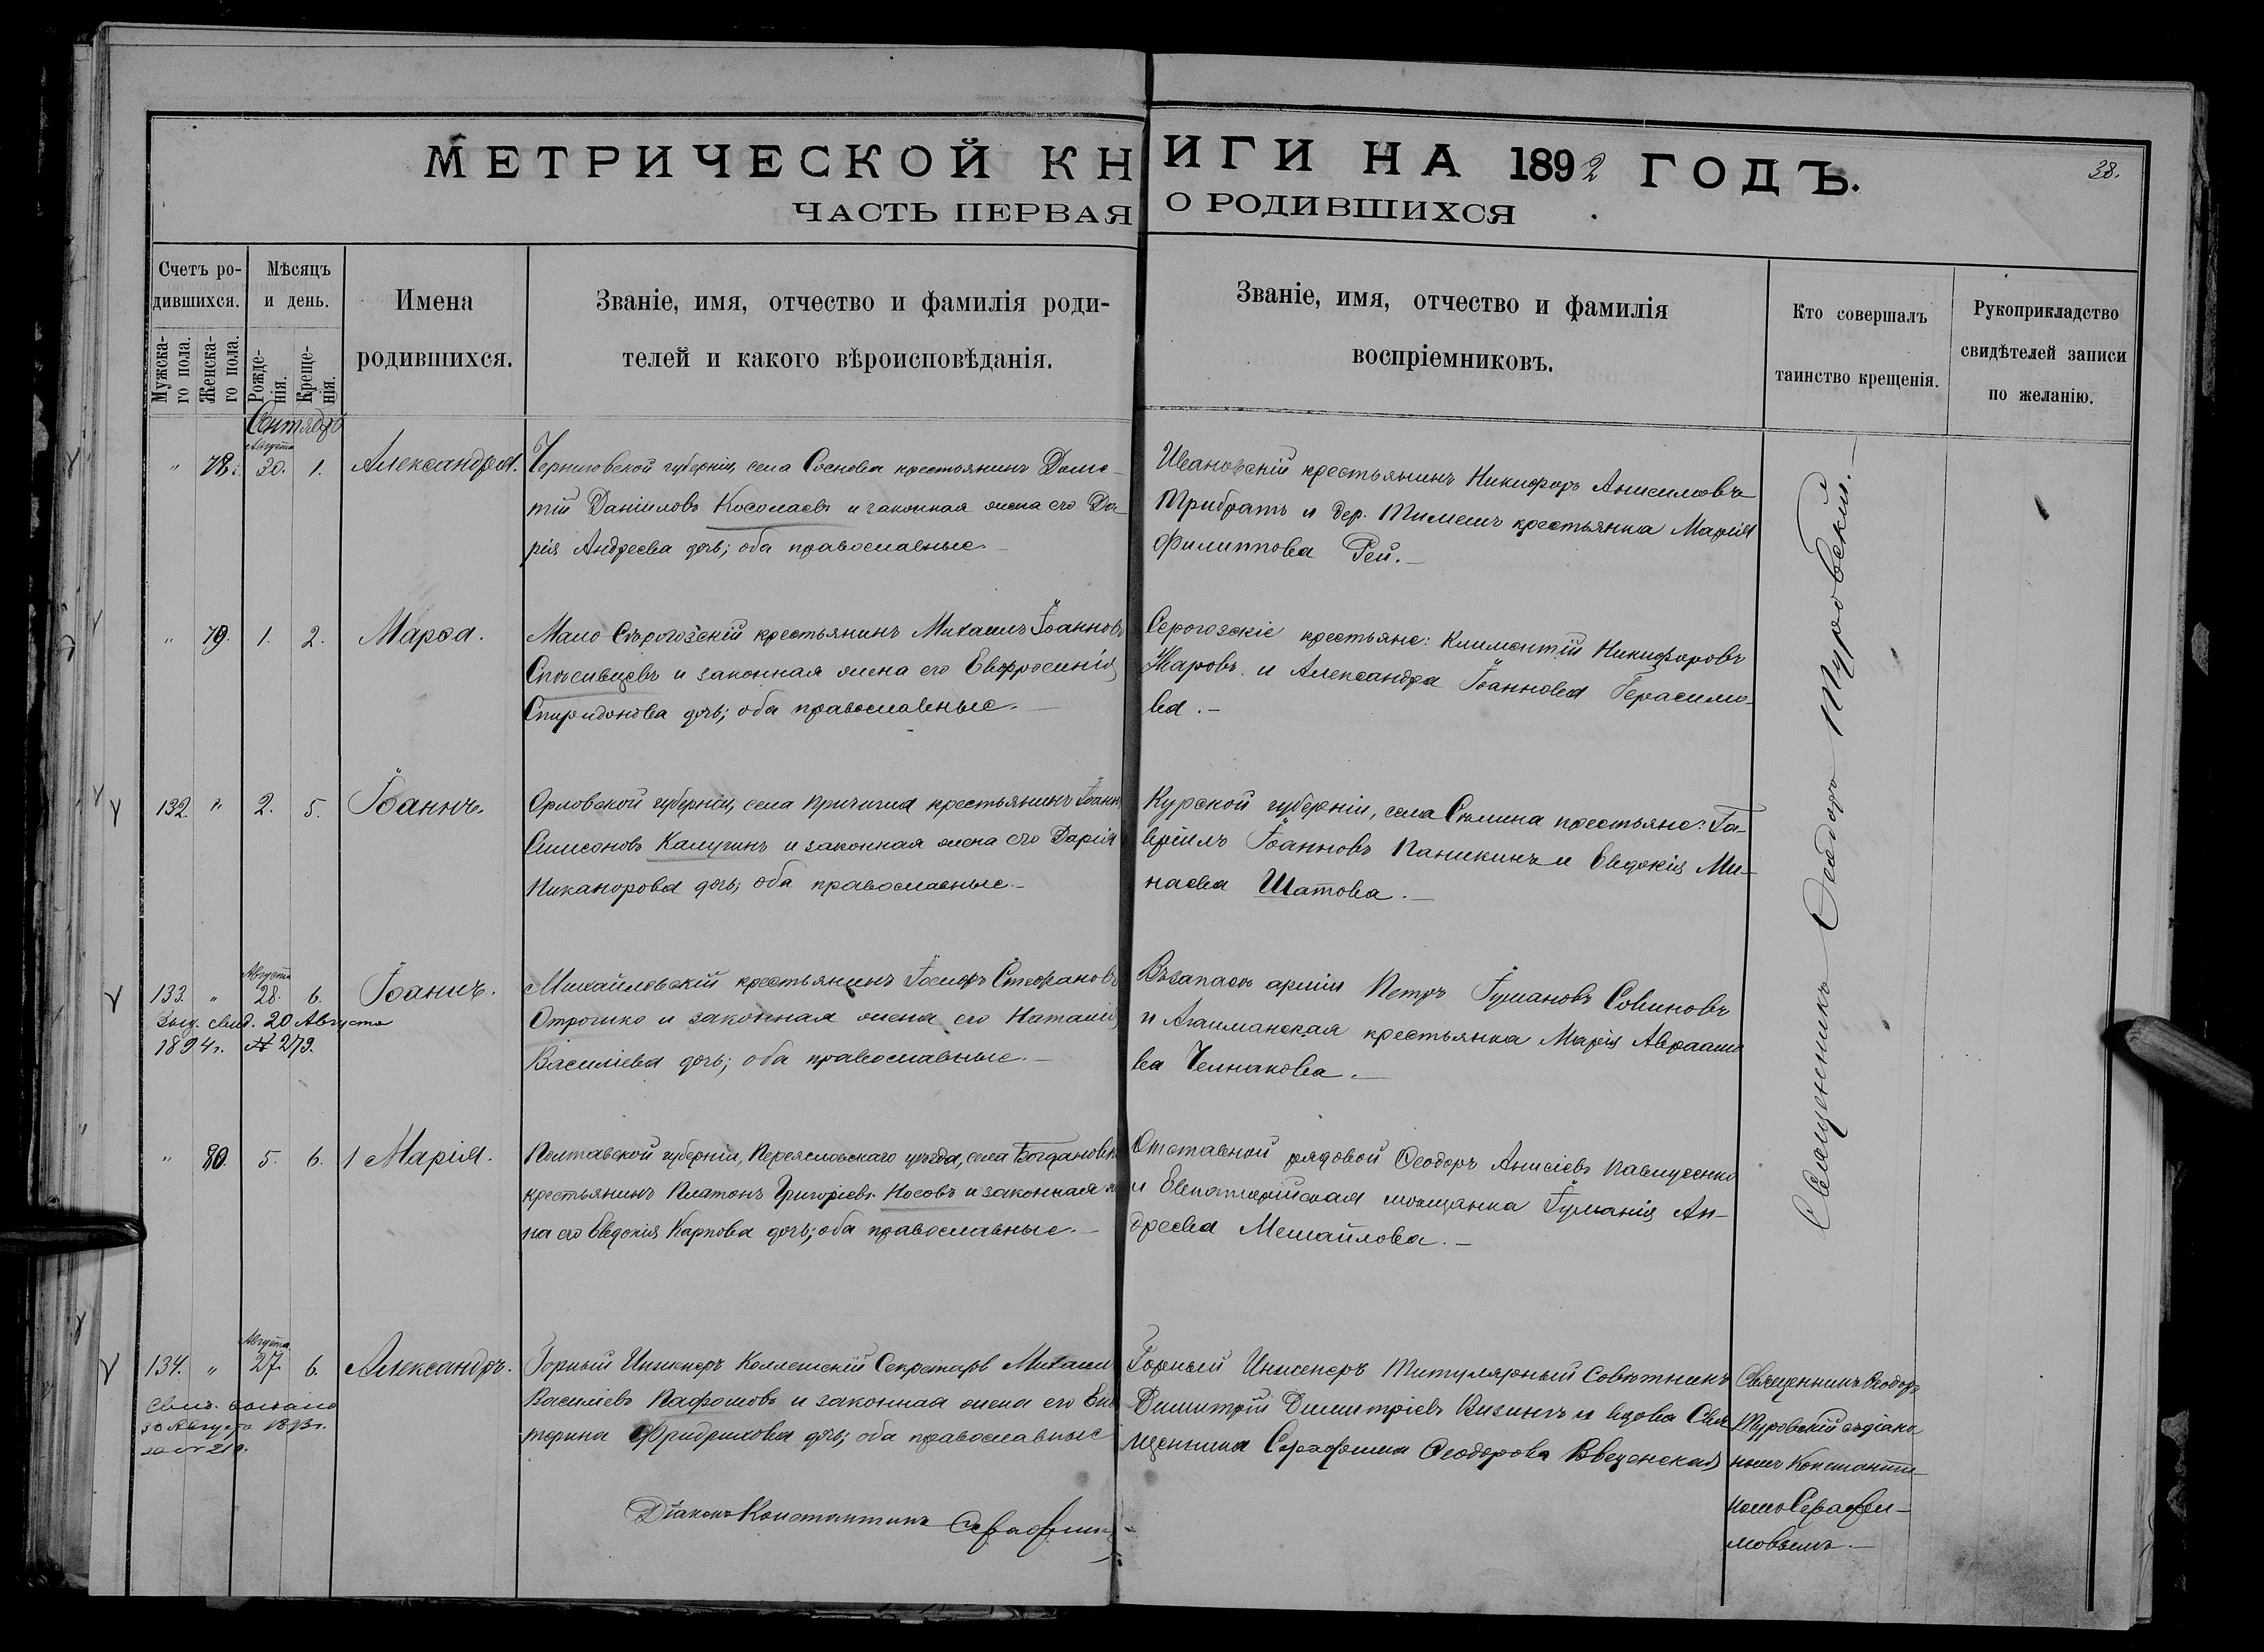 МЕТРИЧЕСКОЙ КНИГИ НА 1892 ГОДЪ.
38.
ЧАСТЬ ПЕРВАЯ О РОДИВШИХСЯ
Счетъ ро-
дившихся.
Мужска-
го пола.
Женска-
го пола.
Мѣсяцъ
и день.
Рожде-
нія.
Креще-
нія.
Имена
родившихся.
Званіе, имя, отчество и фамилія роди-
телей и какого вѣроисповѣданія.
Званіе, имя, отчество и фамилія
воспріемниковъ.
Кто совершалъ
таинство крещенія.
Рукоприкладство
свидѣтелей записи
по желанію.
Сентябрь
Августа
" 78. 30. 1. Александра.
Черниговской губерніи, села Соснова крестьянинъ
Даніиловъ Косолаевъ и законная жена его Да-
рія Андреева дочь; оба православные.
Ивановскій крестьянинъ Никифоръ Анисимовъ
Трибратъ и дер. крестьянка Марія
Филиппова Рей.
" 79. 1. 2. Марѳа.
Мало Сѣрогозскій крестьянинъ Михаилъ Іоанновъ
Спасивцевъ и законная жена его Евфросинія
Спиридонова дочь; оба православные.
Серогозскіе крестьяне: Климентій Никифоровъ
Жаровъ и Александра Іоаннова Герасимо-
ва.
132. " 2. 5. Іоаннъ.
Орловской губерніи, села крестьянинъ Іоаннъ
Симеоновъ Калугинъ и законная жена его Дарія
Никанорова дочь; оба православные.
Курской губерніи, села Сѣлина крестьяне: Га-
вріилъ Іоанновъ Паникинъ и Евдокія Ми-
наева Шатова.
Августа
133. " 28. 6. Іоаннъ.
Выд. свид. 20 Августа
1894 г. № 279.
Михайловскій крестьянинъ Іосифъ Стефановъ
Отрошко и законная жена его Наталія
Василіева дочь; оба православные.
Въ запасѣ арміи Петръ Іуліановъ Совиновъ
и Агаиманская крестьянка Марія Авраамо
ва Челнакова.
" 80. 5. 6. 1 Марія.
Полтавской губерніи, Переяславскаго уѣзда, села Богдановки
крестьянинъ Платонъ Григоріевъ Носовъ и законная же
на его Евдокія Карпова дочь; оба православные.
Отставной рядовой Ѳеодоръ Анисіевъ Павлученко
и Евпаторійская мѣщанка Іуліанія Ан-
дреева Мешайлова.
Августа
134. " 27. 6. Александръ.
30 Августа
Горный Инженеръ Коллежскій Секретарь Михаилъ
Василіевъ Пафомовъ и законная жена его Ека
терина Фридрихова дочь; оба православные
Горный Инженеръ Титулярный Совѣтникъ
Димитрій Димитріевъ Визингъ и вдова Свя
щенника Серафима Ѳеодорова Введенская
Священникъ Ѳеодоръ
Туровскій съ діако
номъ Константи-
номъ Серафи-
мовымъ.
Священникъ Ѳеодоръ Туровскій.
Діаконъ Константинъ